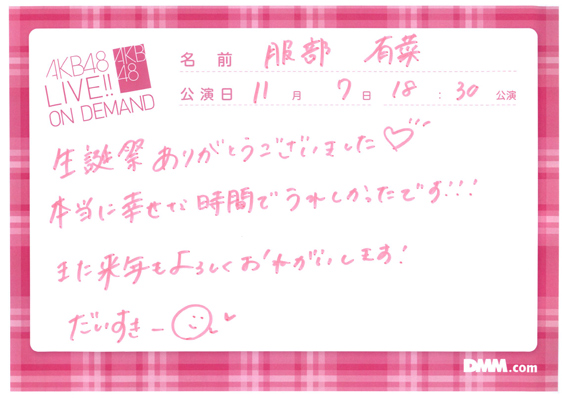 AKB48
LIVE!!
ON DEMAND
AKB
48
名前 服部 有菜
公演日 11月 7日 18:30 公演
生誕祭ありがとうございました♡
本当に幸せな時間でうれしかったです!!!
また来年もよろしくおねがいします!
だいすきー
DMM.com